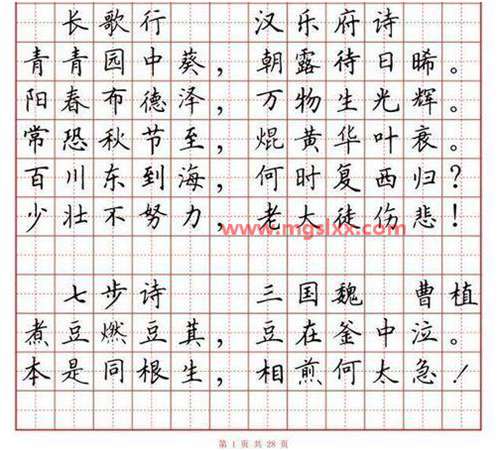 长歌行 汉乐府诗
青青园中葵，朝露待日晞。
阳春布德泽，万物生光辉。
常恐秋节至，焜黄华叶衰。
百川东到海，何时复西归？
少壮不努力，老大徒伤悲！
www.mgslxx.com
七步诗 三国魏 曹植
煮豆燃豆萁，豆在釜中泣。
本是同根生，相煎何太急！
第 1 页 共 28 页